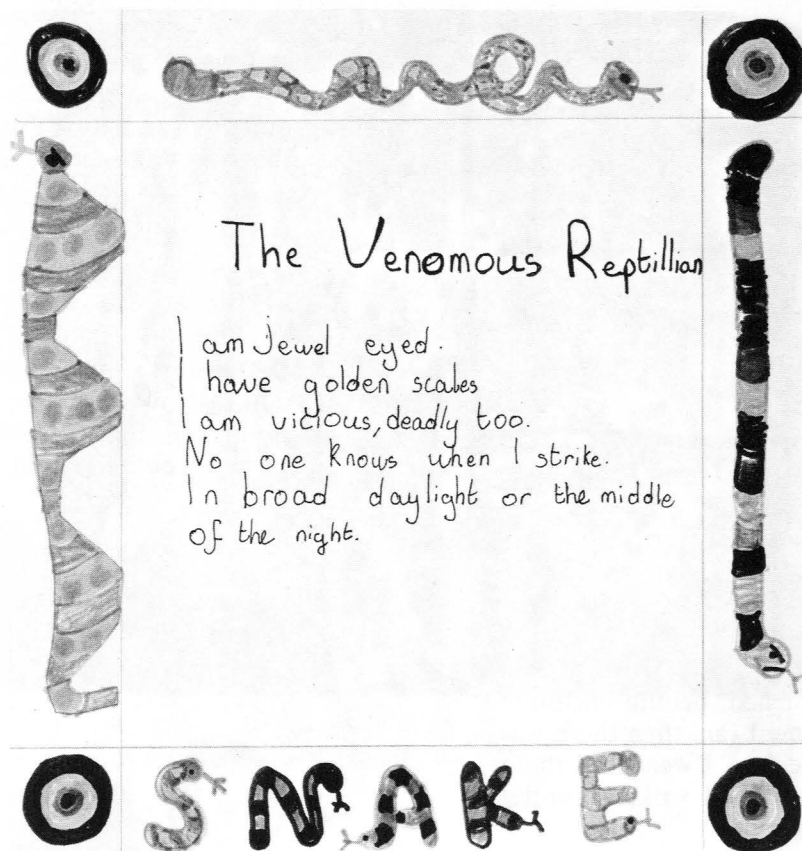 The Venomous Reptillian
I am Jewel eyed.
I have golden scales
I am vicious, deadly too.
No one knows when I strike.
In broad daylight or the middle
of the night.
SNAKE